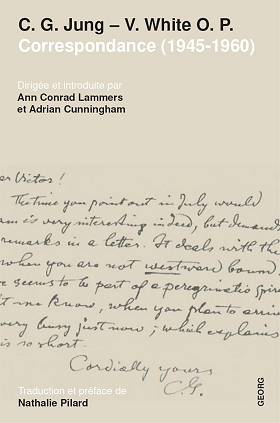 C. G. Jung – V. White O. P.
Correspondance (1945-1960)
Dirigée et introduite par
Ann Conrad Lammers
et Adrian Cunningham
ear Victor!
The time you point out in July would
am is very interesting indeed, but demands
remarks in a letter. It deals with the
when you are not westward bound.
e seems to be part of a peregrinatio spiri
t me know, when you plan to arrive
very busy just now; which explains
is so short.
Cordially yours
C.G.
Traduction et préface de
Nathalie Pilard
GEORG